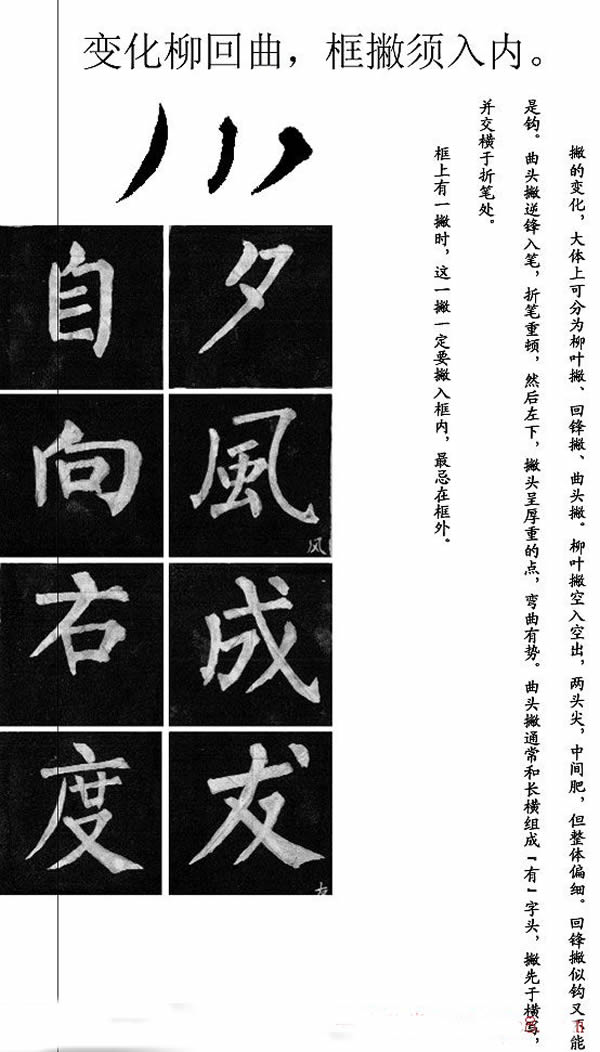 变化柳回曲，框撇须入内。
撇的变化，大体上可分为柳叶撇、回锋撇、曲头撇。柳叶撇空入空出，两头尖，中间肥，但整体偏细。回锋撇似钩又不能
是钩。曲头撇逆锋入笔，折笔重顿，然后左下，撇头呈厚重的点，弯曲有势。曲头撇通常和长横组成「有」字头，撇先于横写，
并交横于折笔处。
框上有一撇时，这一撇一定要撇入框内，最忌在框外。
夕
風
风
成
友
自
向
右
度